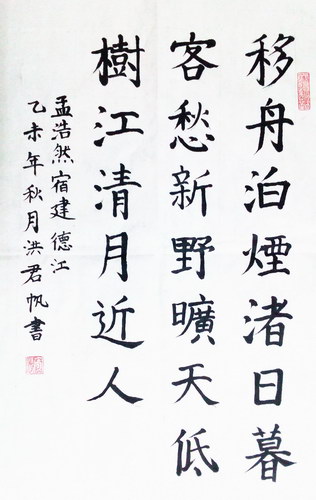 移舟泊煙渚日暮
客愁新野曠天低
樹江清月近人
孟浩然宿建德江
乙未年秋月洪君帆書